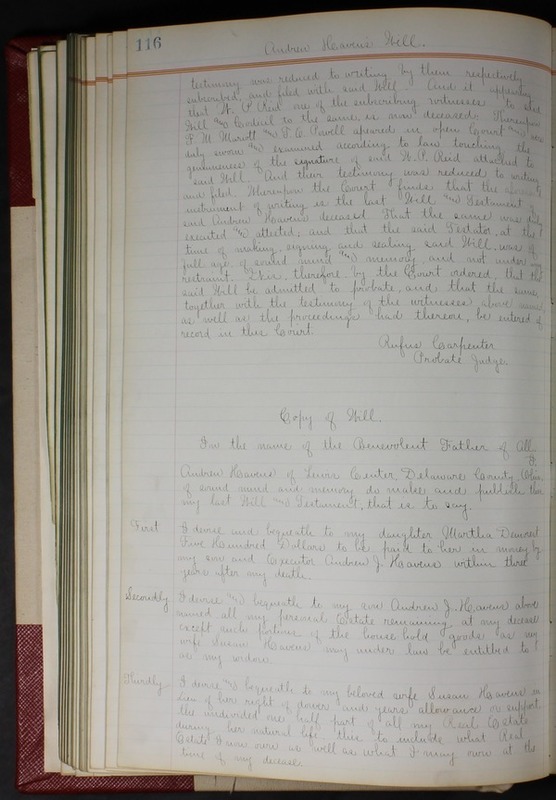 116
Andrew Havens Will.
testimony was reduced to writing by them respectively
subscribed, and filed with said Will. And it appearing
that W. P. Reid one of the subscribing witnesses to said
Will and Codicil to the same is now deceased: Thereupon
F. M. Marriott and T. E. Powell apeared in open Court and were
duly sworn and examined according to law touching the
genuineness of the signature of said W. P. Reid attached to
said Will. And their testimony was reduced to writing
and filed. Whereupon the Court finds that the aforesaid
instrument of writing is the last Will and Testament of
said Andrew Havens deceased That the same was duly
executed and attested; and that the said Testator, at the
time of making, signing and sealing said Will, was of
full age, of sound mind and memory, and not under
restraint. It is, therefore, by the Court ordered, that the
said Will be admitted to probate, and that the same
together with the testimony of the witnesses above named
as well as the proceedings had thereon, be entered of
record in this Court.
Rufus Carpenter
Probate Judge.
Copy of Will.
In the name of the Benevolent Father of All.
I,
Andrew Havens of Lewis Center, Delaware County, Ohio,
of sound mind and memory do make and publish this
my last Will and Testament, that is to say.
First I devise and bequeath to my daughter Martha
Five Hundred Dollars to be paid to her in money by
my son and Executor Andrew J. Havens within three
years after my death.
Secondly I devise and bequeath to my son Andrew J. Havens above
named all my personal Estate remaining at my decease
except such portions of the household goods as my
wife Susan Havens may under law be entitled to
as my widow.
Thirdly I devise and bequeath to my beloved wife Susan Havens in
lieu of her right of dower and years allowance or support
the undivided one half part of all my Real Estate
during her natural life; this to include what Real
Estate I now own as well as what I may own at the
time of my decease.